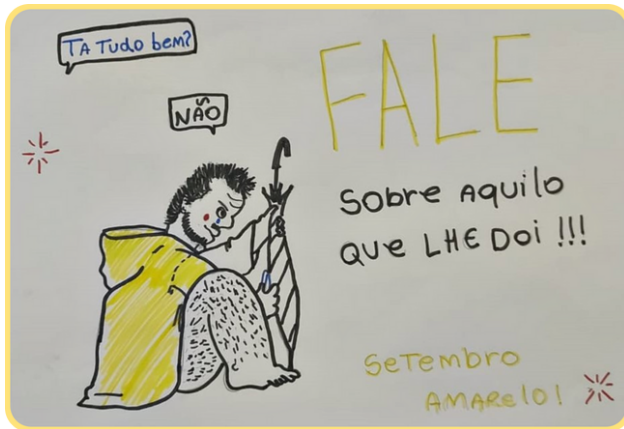 TA TUDO bem?
NÃO
FALE
SOBRE AQUILO
QUE LHE DOI !!!
SETEMBRO
AMARElO!